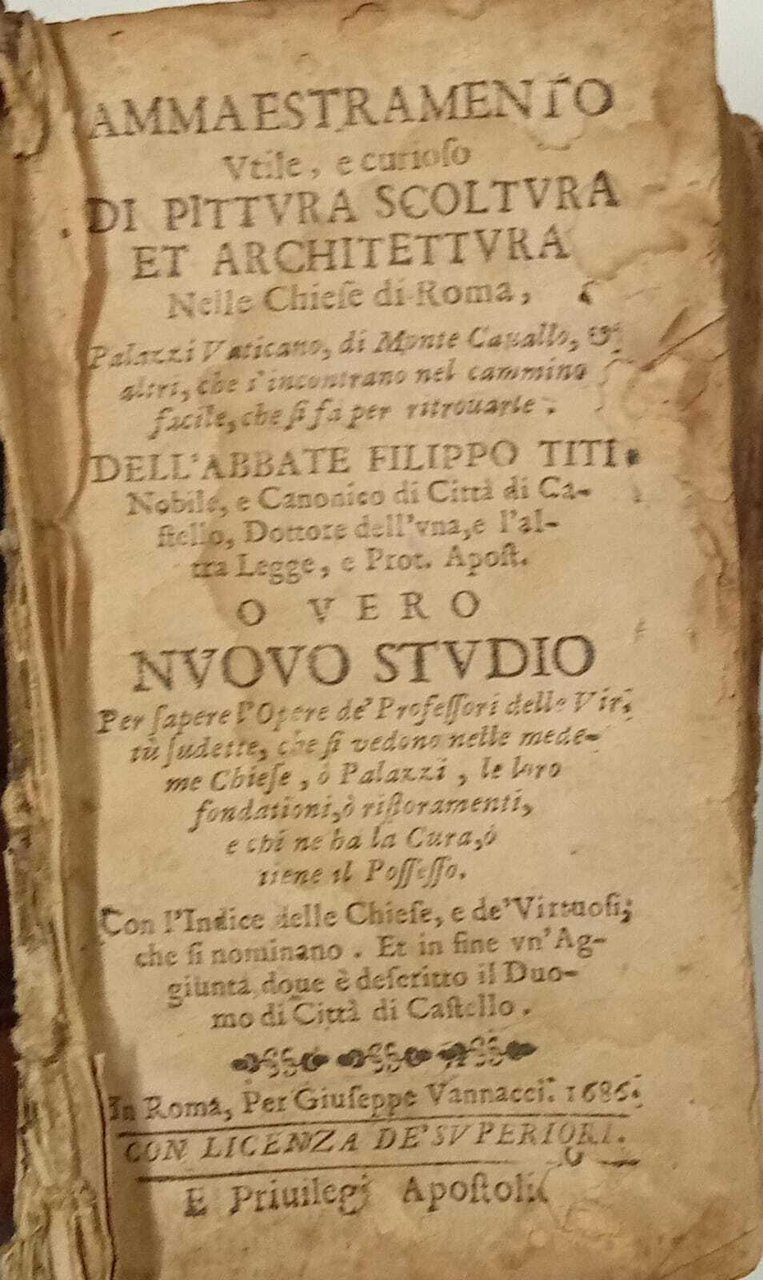 AMMAESTRAMENTO
Vtile, e curioſo
DI PITTVRA SCOLTVRA
ET ARCHITETTVRA
Nelle Chieſe di Roma,
Palazzi Vaticano, di Monte Cauallo, &
altri, che s'incontrano nel cammino
facile, che ſi fà per ritrouarle.
DELL'ABBATE FILIPPO TITI.
Nobile, e Canonico di Città di Ca-
ſtello, Dottore dell'vna, e l'al-
tra Legge, e Prot. Apoſt.
O VERO
NVOVO STVDIO
Per ſapere l'Opere de' Profeſſori delle Vir-
tù ſudette, che ſi vedono nelle mede-
me Chieſe, ò Palazzi, le loro
fondationi, ò riſtoramenti,
e chi ne ha la Cura, ò
tiene il Poſſeſſo.
Con l'Indice delle Chieſe, e de' Virtuoſi,
che ſi nominano. Et in fine vn' Ag-
giunta doue è deſcritto il Duo-
mo di Città di Caſtello.
In Roma, Per Giuſeppe Vannacci. 1686.
CON LICENZA DE' SVPERIORI.
E Priuilegj Apoſtoli